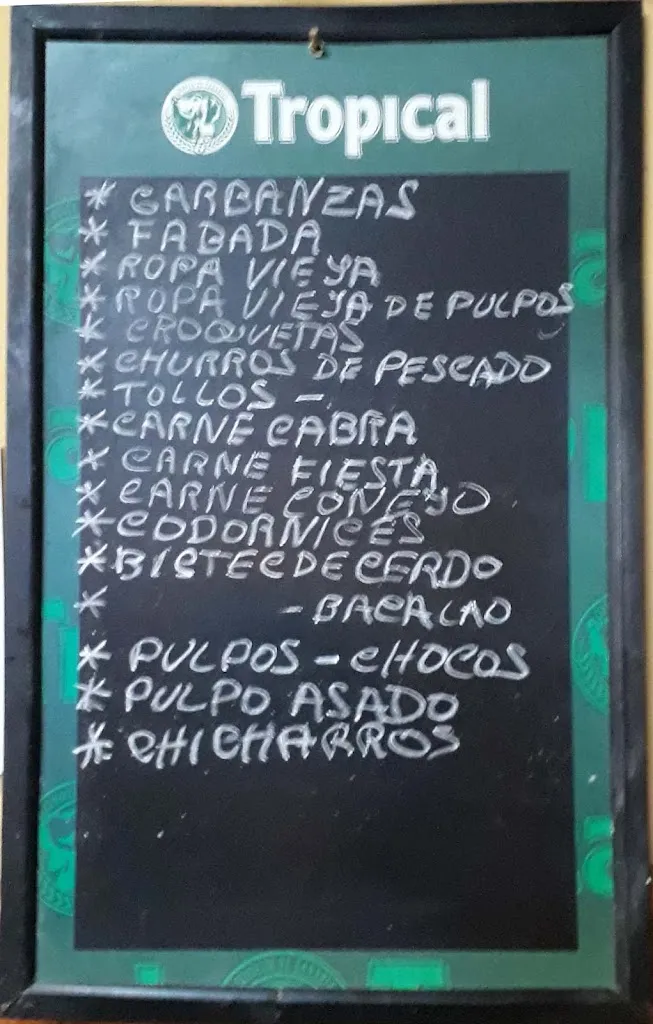 Tropical
* GARBANZAS
* FABADA
* ROPA VIEYA
* ROPA VIEYA DE PULPOS
* CROQUETAS
* CHURROS DE PESCADO
* TOLLOS -
* CARNE CABRA
* CARNE FIESTA
* CARNE CONEYO
* CODORNICES
* BISTEC DE CERDO
* - BACALAO
* PULPOS - CHOCOS
* PULPO ASADO
* CHICHARROS